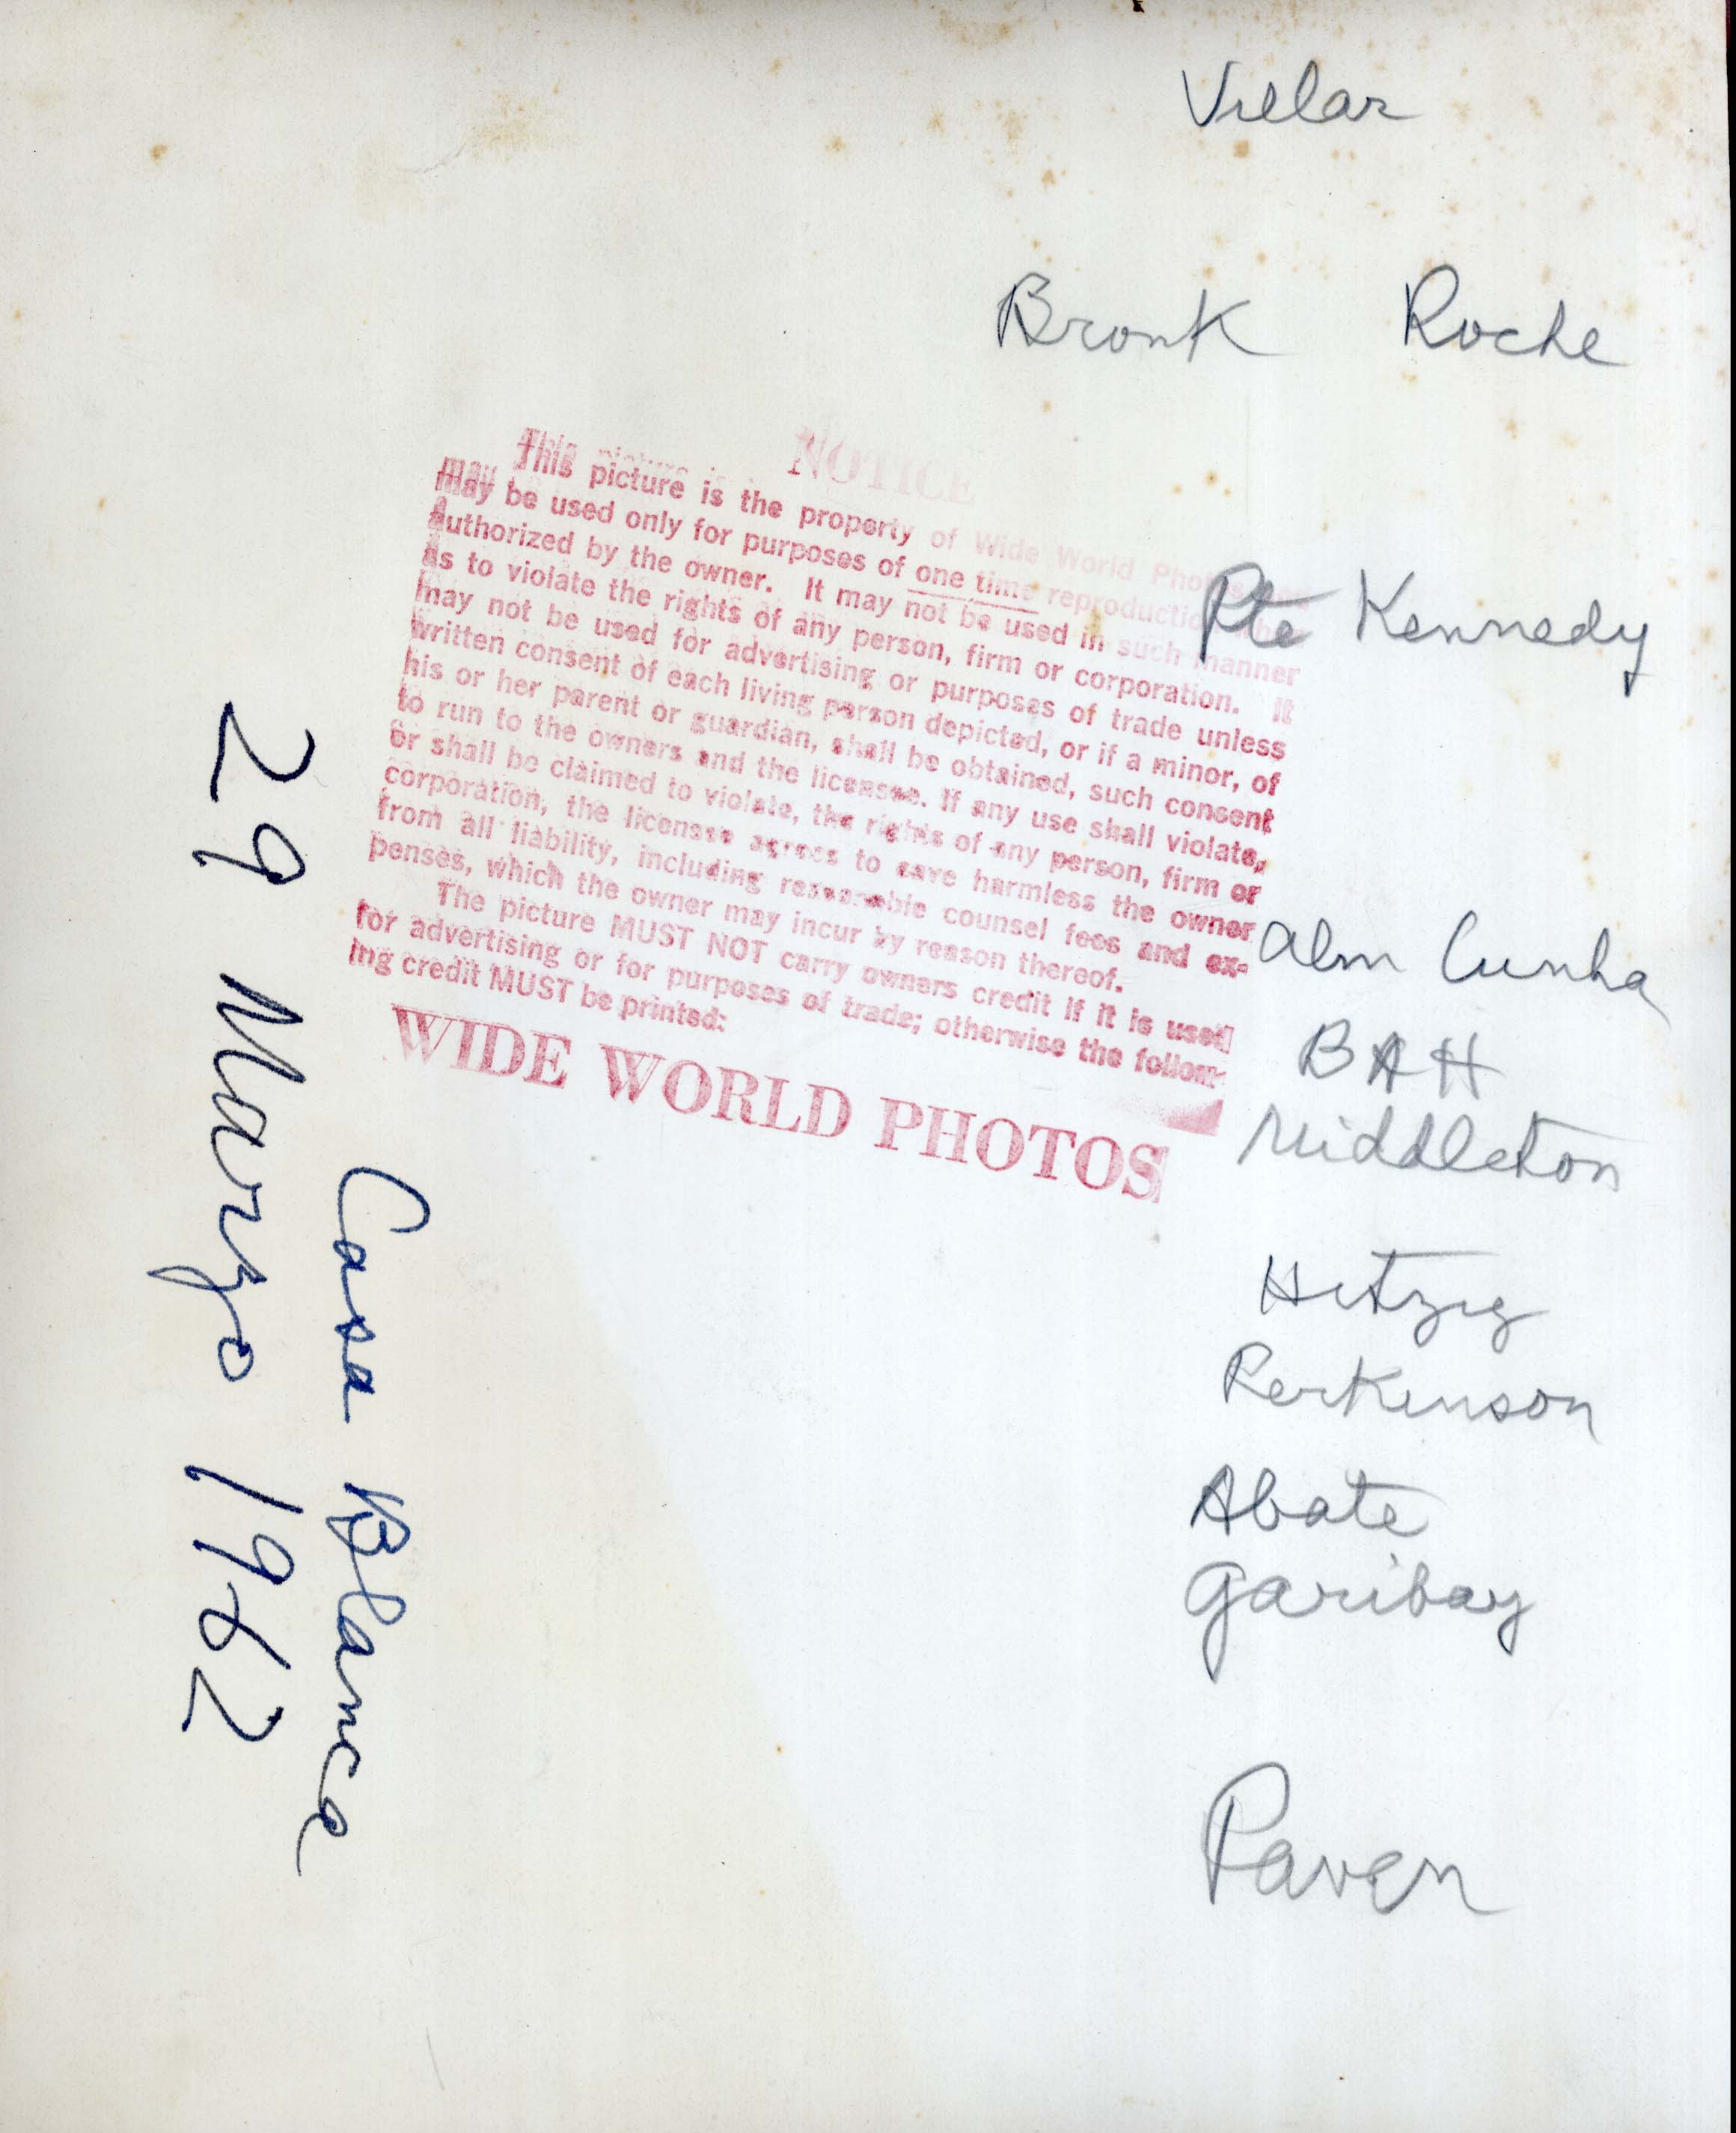 Villar
Bronk Roche
NOTICE
This picture is the property of Wide World Photos and
may be used only for purposes of one time reproduction when
authorized by the owner. It may not be used in such manner
as to violate the rights of any person, firm or corporation. It
may not be used for advertising or purposes of trade unless
written consent of each living person depicted, or if a minor, of
his or her parent or guardian, shall be obtained, such consent
to run to the owners and the licensee. If any use shall violate,
or shall be claimed to violate, the rights of any person, firm or
corporation, the licensee agrees to save harmless the owner
from all liability, including reasonable counsel fees and ex-
penses, which the owner may incur by reason thereof.
The picture MUST NOT carry owners credit if it is used
for advertising or for purposes of trade; otherwise the follow-
ing credit MUST be printed:
WIDE WORLD PHOTOS
Pte Kennedy
Alm Cunha
BAH
Middleton
Hitzig
Perkinson
Abate
Garibay
Paven
Casa Blanca
29 Marzo 1962